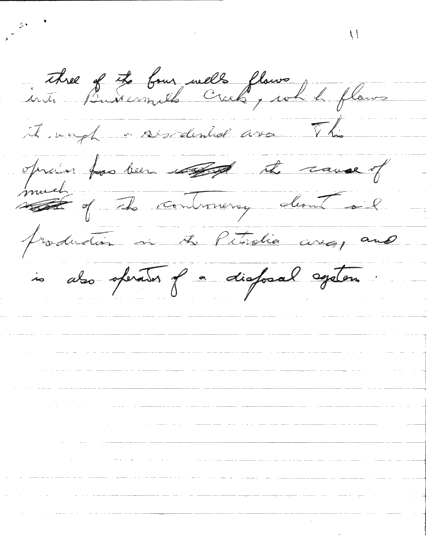 11
three of the four wells flows
into Buttermilk Creek, which flows
through a residential area. This
operator has been the cause of
much
of the controversy about oil
production in the Petrolia area, and
is also operator of a disposal system.